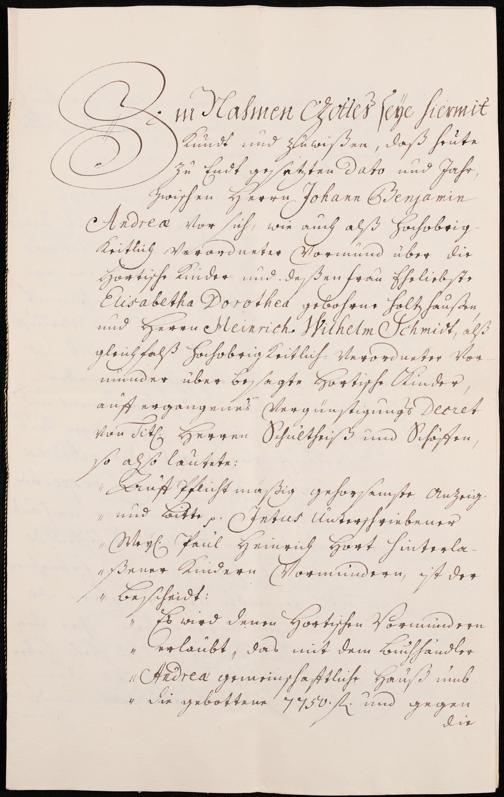 Im Nahmen Gottes seye hiermit
Kundt und zuwißen, daß heute
zu Endt gesetzten dato und Jahr,
zwischen Herrn Johann Benjamin
Andreæ vor sich, wie auch alß hochobrig-
keitlich verordneter Vormund über die
Hortische Kinder und deßen frau Eheliebste
Elisabetha Dorothea gebohrne Holtzhaußen,
und Herrn Heinrich Wilhelm Schmidt, alß
gleichfalß hochobrigkeitlich verordneter Vor-
münder über besagte Hortische Kinder,
auff ergangenes Vergünstigungs Decret
von Titl. Herren Schultheiß und Schöffen,
so also lautete:
" Auff Pflichtmäßig gehorsamste Anzeig
" und Bitte p. Intus Unterschriebener
" Weyl. Paul Heinrich Hort hinterla-
" ßener Kindern Vormündern, ist der
" Bescheidt:
" Es wird denen Hortischen Vormündern
" erlaubt, das mit dem Buchhändler
" Andreæ gemeinschafftliche Hauß umb
" die gebottene 7750. fl. und gegen
die